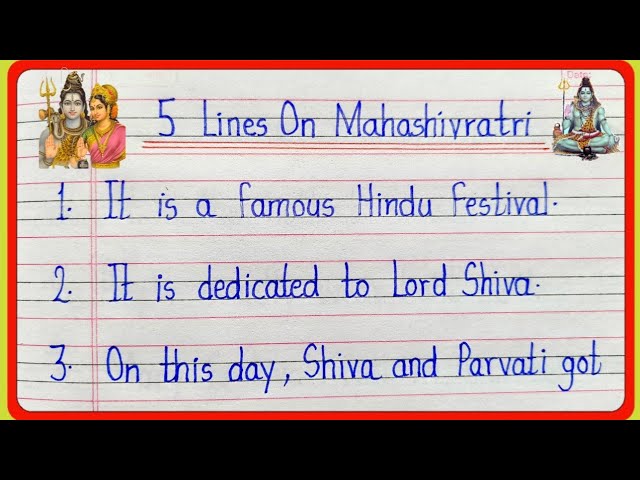 Date:
5 Lines On Mahashivratri
1. It is a famous Hindu festival.
2. It is dedicated to Lord Shiva.
3. On this day, Shiva and Parvati got